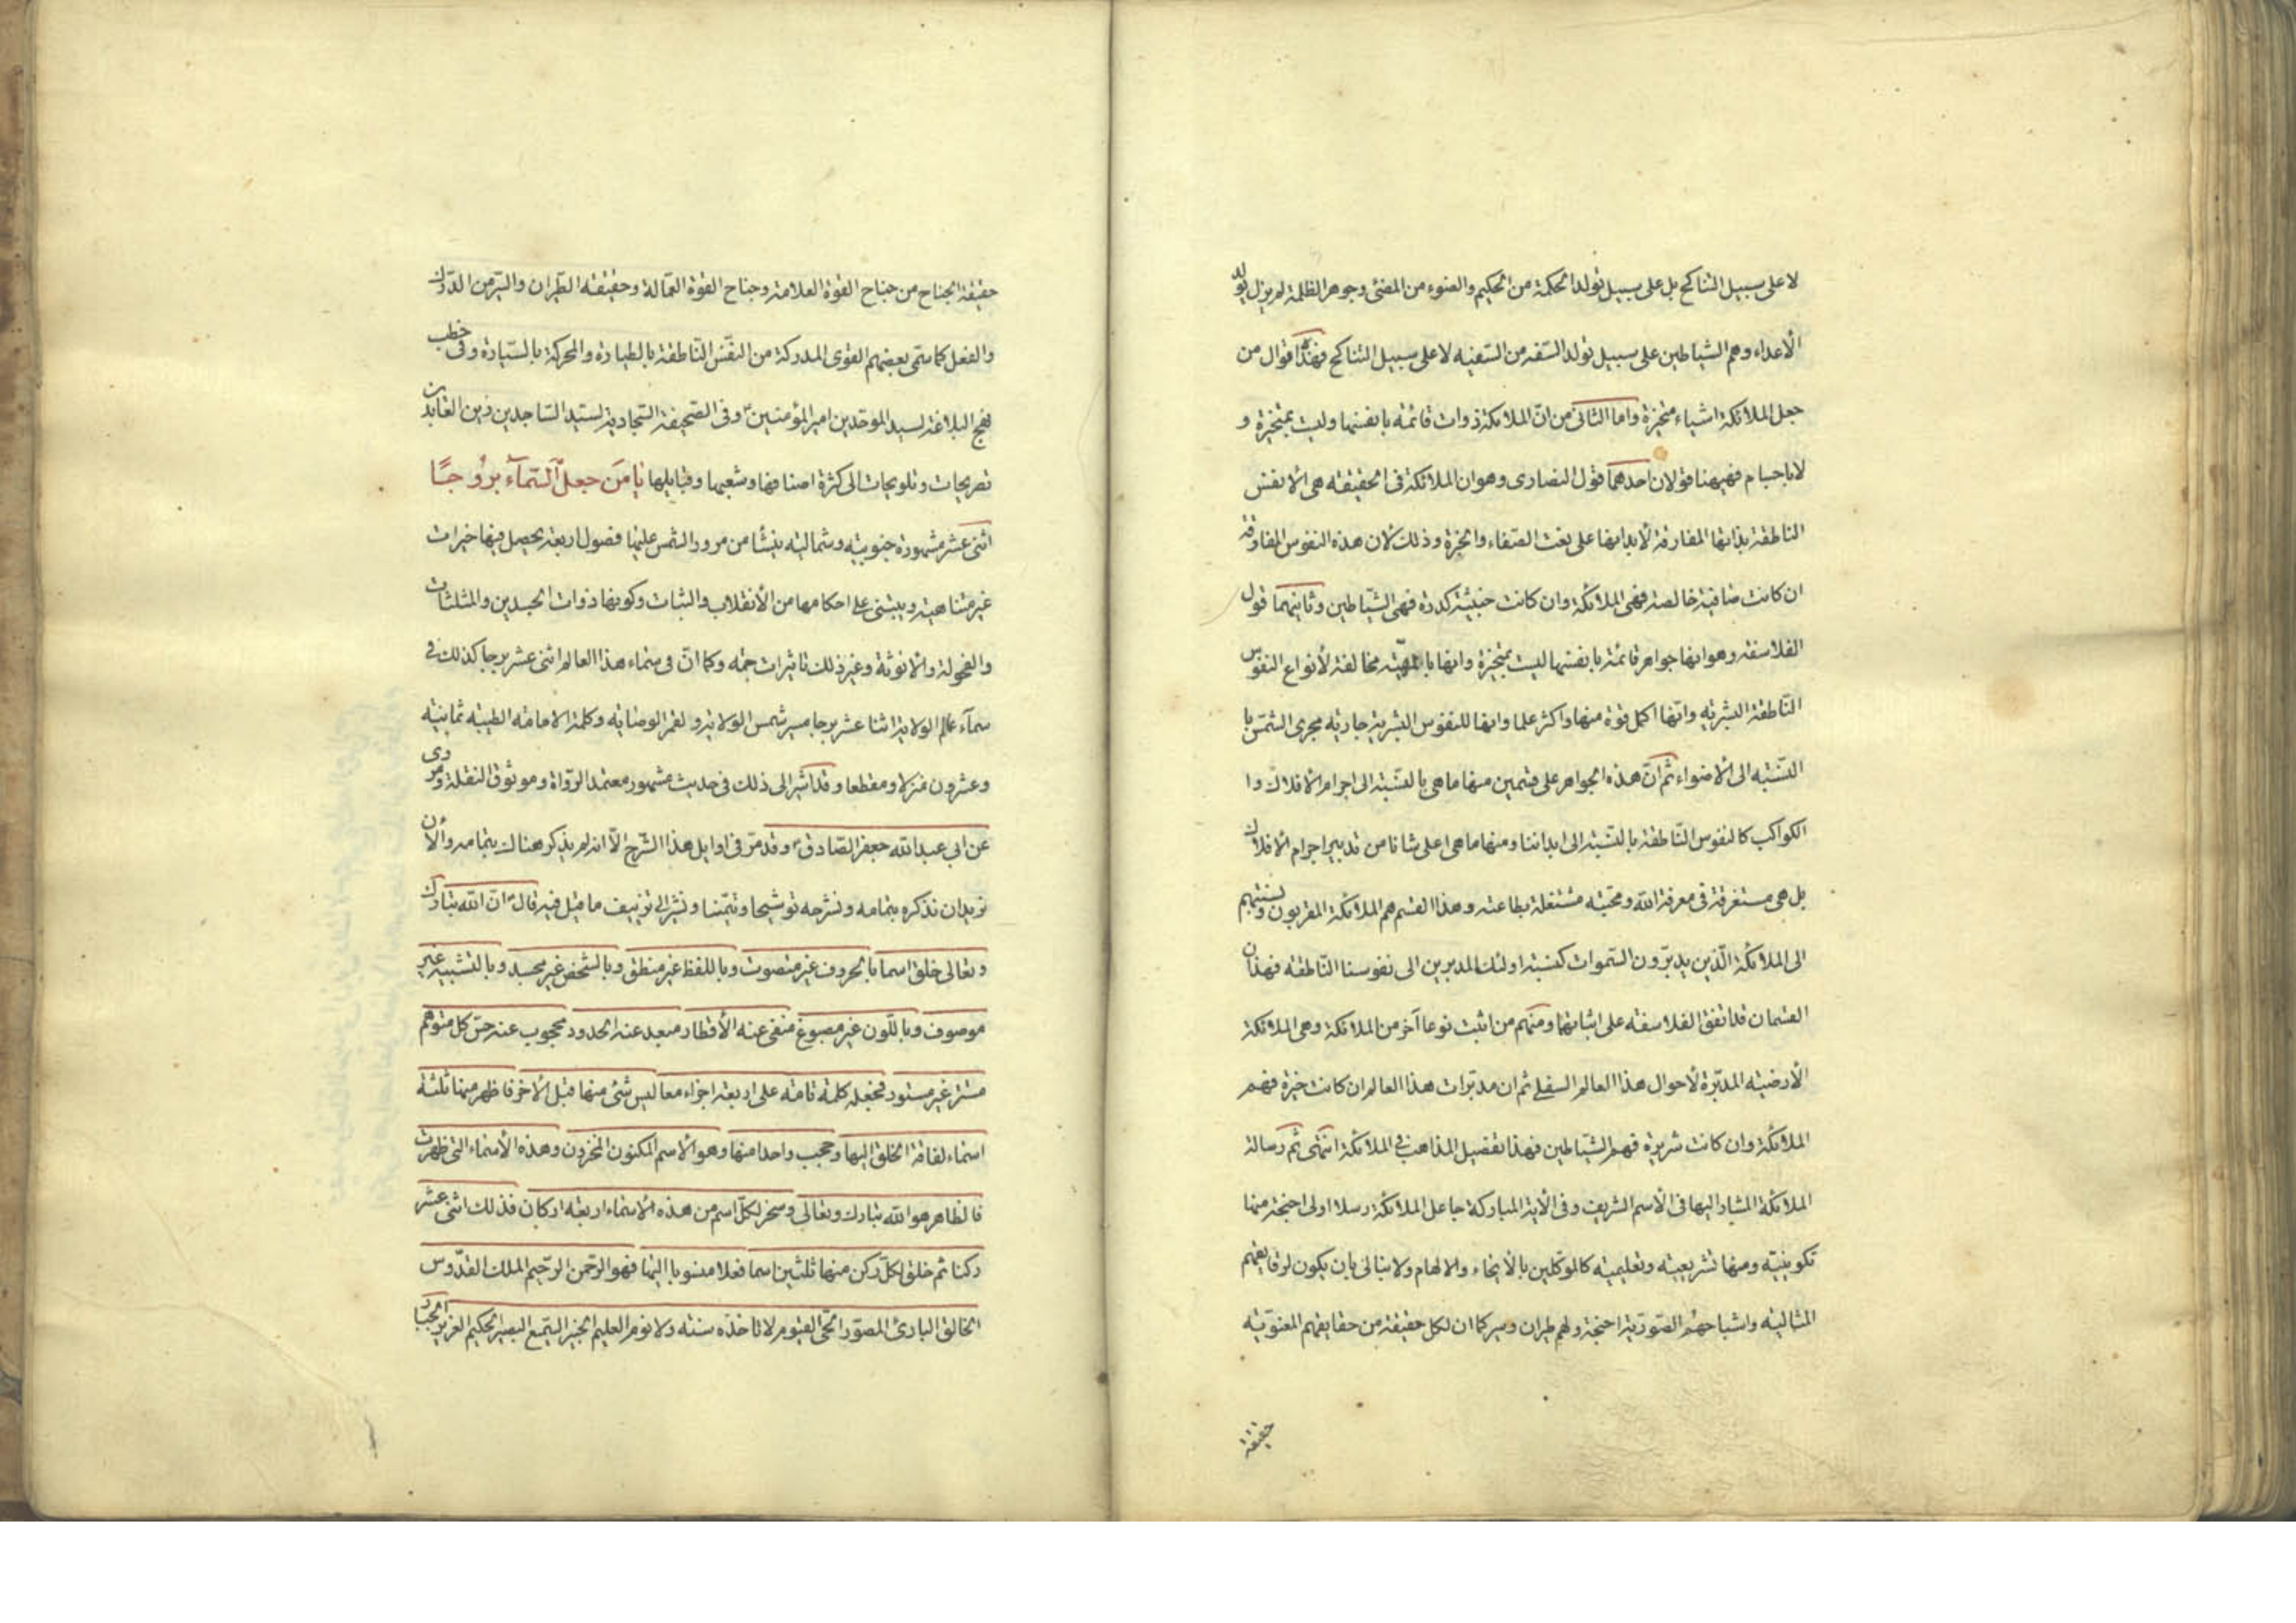 لا على سبيل التناكح بل على سبيل تولد الحكمة من الحكيم والضوء من المضئ وجوهر الظلمة لم يزل يولد
الأعداء وهم الشياطين على سبيل تولد السفه من السفيه لا على سبيل التناكح فهذه اقوال من
جعل الملائكة اشياء متحيزة واما الثانى من انّ الملائكة ذوات قائمة بانفسها وليست بمتحيزة و
لا باجسام فهيهنا قولان احدهما قول النصارى وهو ان الملائكة فى الحقيقة هى الأنفس
الناطقة بذاتها المفارقة لأبدانها على نعت الصفاء والخيرة وذلك لأن هذه النفوس المفارقة
ان كانت صافية خالصة فهى الملائكة وان كانت خبيثة كدرة فهى الشياطين وثانيهما قول
الفلاسفة وهو انها جواهر قائمة بانفسها ليست بمتحيزة وانها بالمهيّة مخالفة لأنواع النفوس
النّاطقة البشرية وانّها اكمل قوة منها واكثر علما وانها للنفوس البشرية جارية مجرى الشمس با
لنّسبة الى الأضواء ثم انّ هذه الجواهر على قسمين منها ما هى بالنّسبة الى اجرام الأفلاك وا
الكواكب كالنفوس النّاطقة بالنّسبة الى ابداننا ومنها ما هى اعلى شانا من تدبير اجرام الأفلاك
بل هى مستغرقة فى معرفة الله ومحبته مشتغلة بطاعته وهذا القسم هم الملائكة المقربون ونسبتهم
الى الملائكة الّذين يدبّرون السّموات كنسبة اولئك المدبرين الى نفوسنا النّاطقة فهذان
القسمان قد اتفق الفلاسفة على اثباتها ومنهم من اثبت نوعا آخر من الملائكة وهى الملائكة
الأرضية المدبّرة لأحوال هذا العالم السفلى ثم ان مدبّرات هذا العالم ان كانت خيرة فهم
الملائكة وان كانت شريرة فهم الشّياطين فهذا تفصيل المذاهب فى الملائكة انتهى ثم رسالة
الملائكة المشار اليها فى الأسم الشريف وفى الأية المباركة جاعل الملائكة رسلا اولى اجنحة منها
تكوينيّة ومنها تشريعية وتعليمية كالموكلين بالأيحاء والالهام ولا ينالى بان يكون لرقايقهم
المثالية واشباحهم الصّوريّة اجنحة ولهم طيران وسير كما ان لكل حقيقة من حقايقهم المعنويّة
حقيقة
حقيقة الجناح من جناح القوة العلامة وجناح القوة العمّالة وحقيقة الطيران والسّير من الدّرك
والفعل كما سمّى بعضهم القوى المدركة من النفس النّاطقة بالطيارة والمحركة بالسّيارة وفى خطب
نهج البلاغة لسيد الموحدين امير المؤمنين وفى الصّحيفة السّجادية لسيد السّاجدين زين العابدين
تصريحات وتلويحات الى كثرة اصنافها وشعبها وقبايلها يا مَن جعل السّمآء بروُجًا
اثنى عشر مشهورة جنوبية وشمالية ينشأ من مرور الشمس عليها فصول اربعة يحصل فيها خيرات
غير متناهية ويبتنى على احكامها من الأنقلاب والثبات وكونها ذوات الجسدين والمثلثات
والفحولة والأنوثة وغير ذلك تاثيرات جمّة وكما انّ فى سماء هذا العالم اثنى عشر برجا كذلك فى
سمآء عالم الولاية اثنا عشر برجا مسير شمس الولاية ولقمر الوصاية وكلمة الامامة الطيبة ثمانية
وعشرون منزلا ومقطعا وقد اشير الى ذلك فى حديث مشهور معتمد الرّواة وموثوق النقلة مروى
عن ابى عبد الله جعفر الصّادق وقد مرّ فى اوايل هذا الشّرح الّا انه لم يذكر هناك بتمامه والأن
نريد ان نذكره بتمامه ونشرحه توشيحا وتيمّنا ونشير الى تزييف ما قيل فيه قال انّ الله تبارك
وتعالى خلق اسما بالحروف غير متصوت وباللفظ غير منطق وبالشخص غير مجسد وبالتشبيه غير
موصوف وباللّون غير مصبوغ منفى عنه الأقطار مبعد عنه الحدود محجوب عنه حسّ كل متوهم
مستتر غير مستور فجعله كلمة تامة على اربعة اجزاء معا ليس شئ منها قبل الأخر فاظهر منها ثلثة
اسماء لفاقة الخلق اليها وحجب واحدا منها وهو الأسم المكنون المخزون وهذه الأسماء التى ظهرت
فالظاهر هو الله تبارك وتعالى وسخر لكلّ اسم من هذه الأسماء اربعة اركان فذلك اثنى عشر
ركنا ثم خلق لكلّ ركن منها ثلثين اسما فعلا منسوبا اليها فهو الرّحمن الرّحيم الملك القدّوس
الخالق البارئ المصوّر الحىّ القيوم لا تاخذه سنة ولا نوم العليم الخبير السّميع البصير الحكيم العزيز الجبار